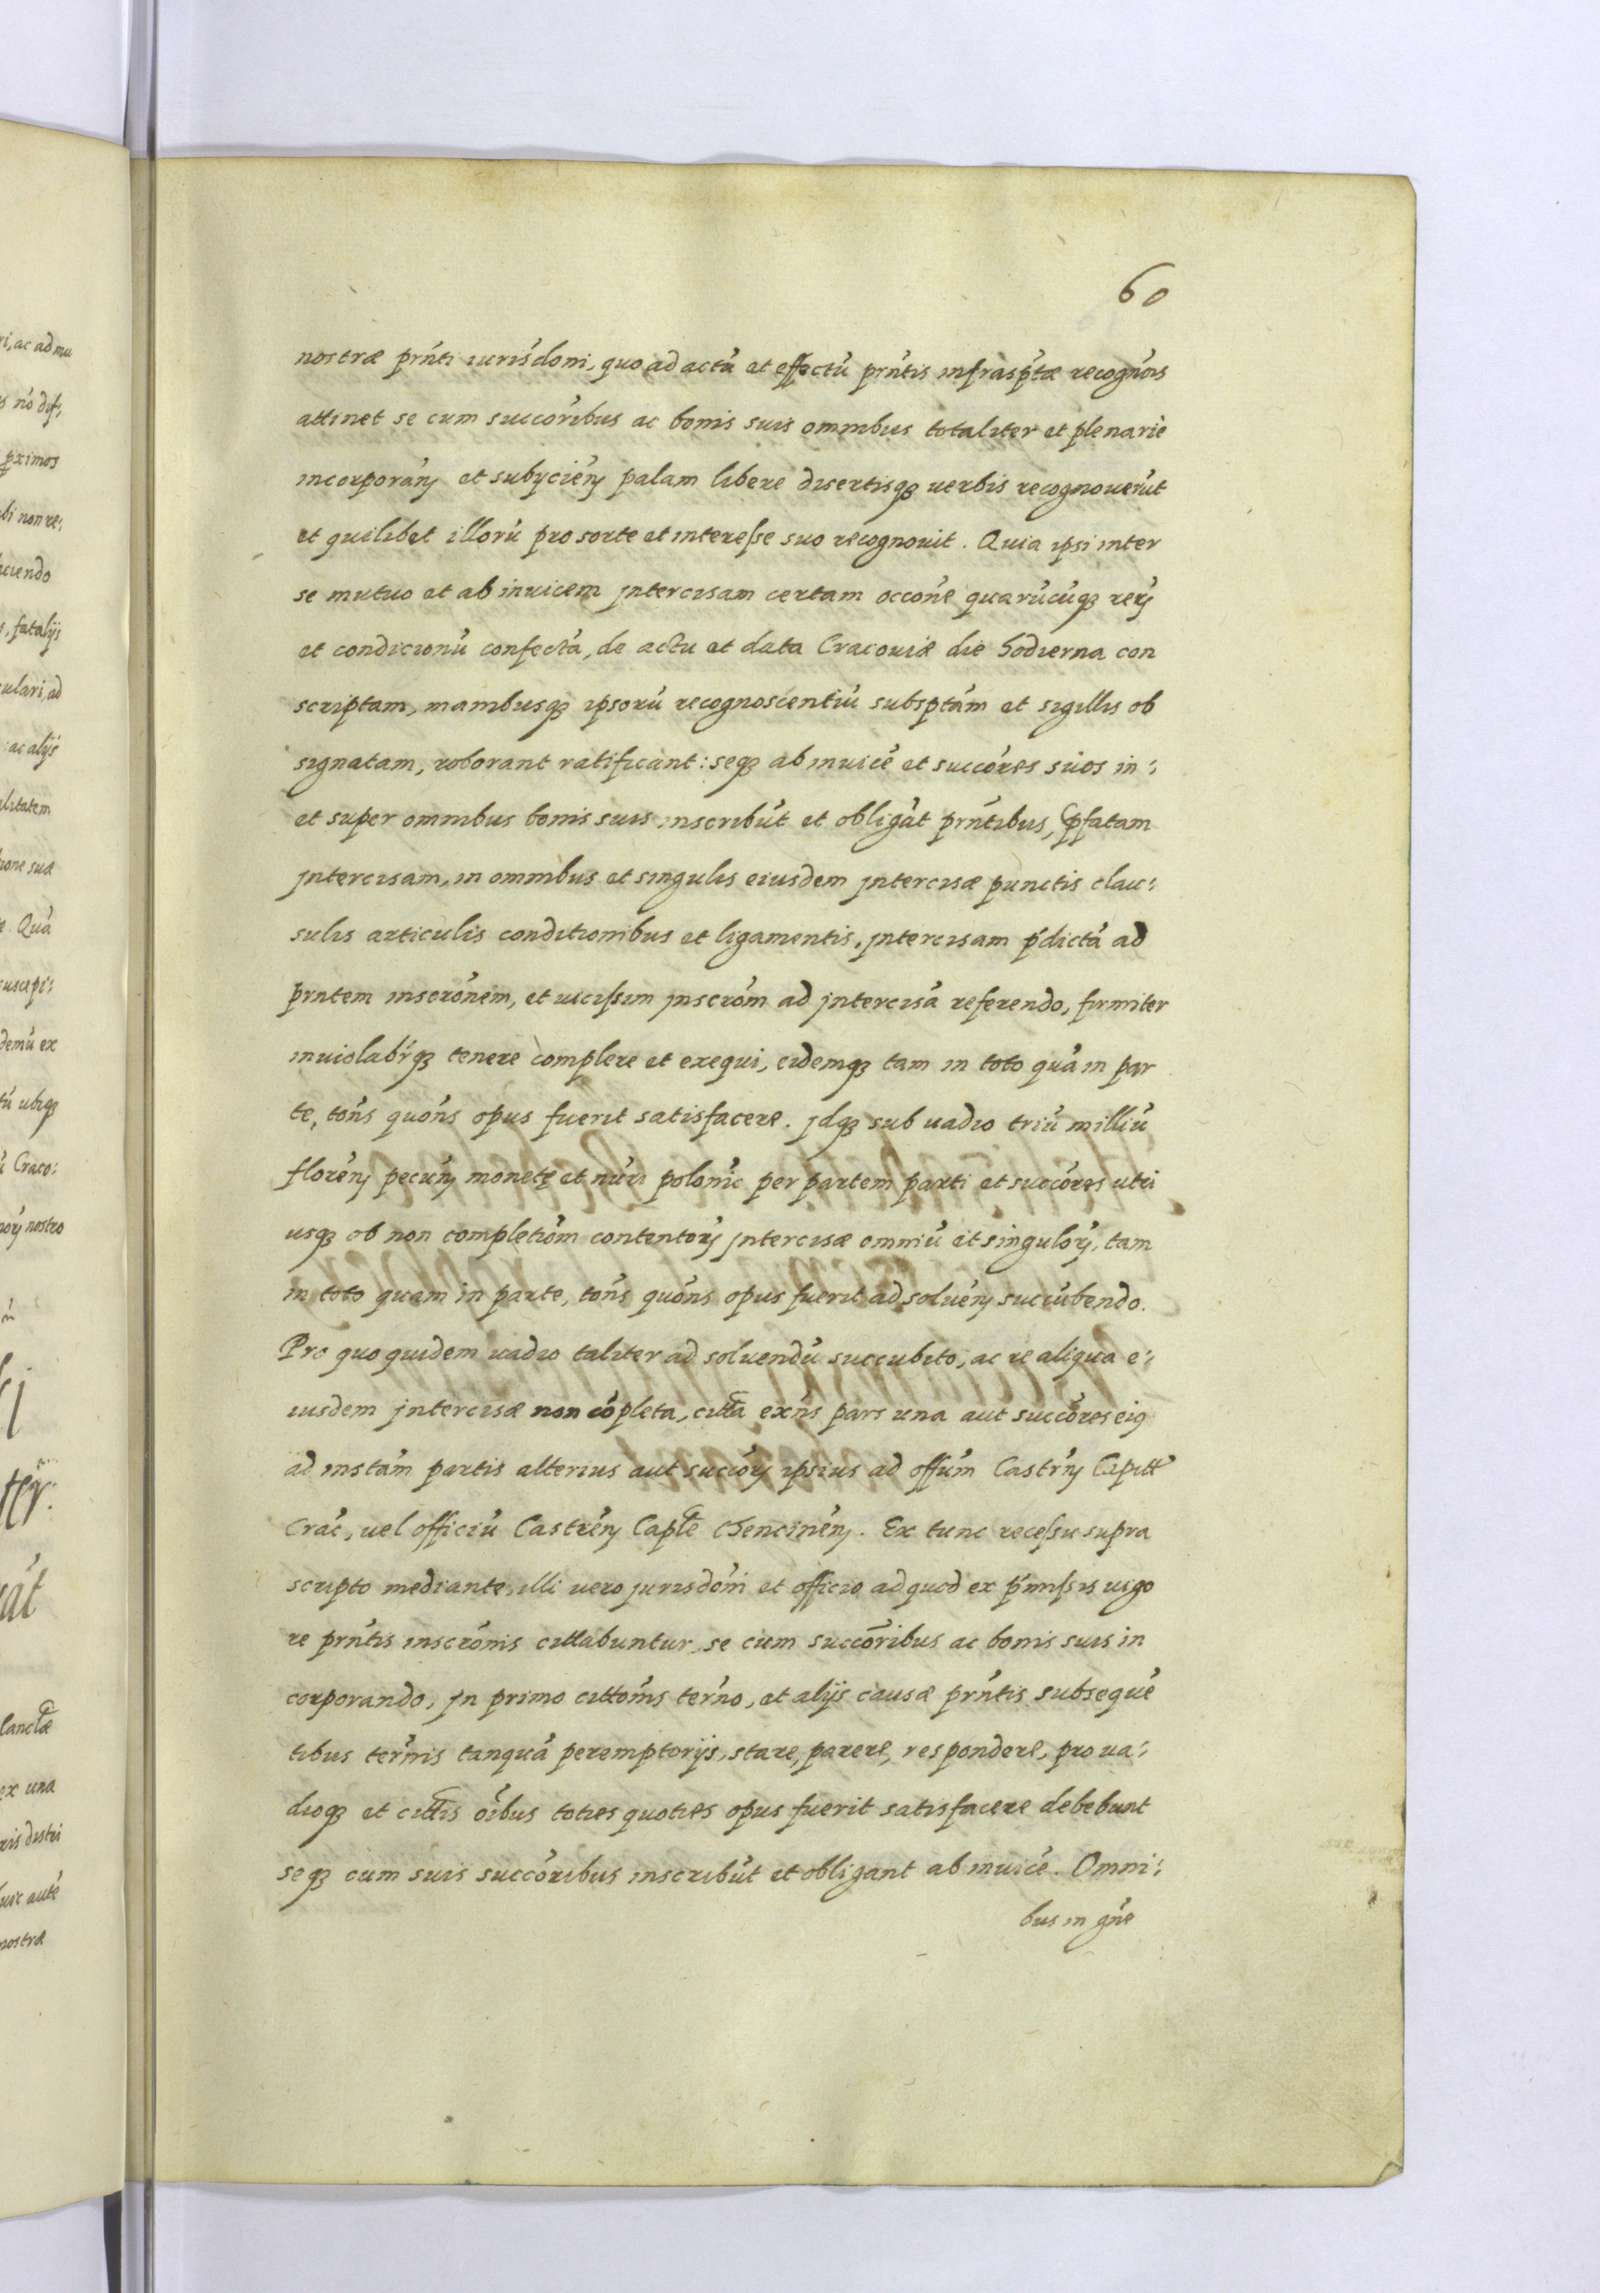 60
nostræ prn̄ti iuris̄doni, quo ad actū et effectū prn̄tis infrasp̄tæ recognōīs
attinet se cum succōribus ac bonis suis omnibus totaliter et plenarie
incorporān̄ et subÿciēn̄ palam libere disertisqꝫ uerbis recognouerūt
et quilibet illorū pro sorte et interesse suo recognouit. Quia ipsi inter
se mutuo et ab inuicem jntercisam certam occōne quarūcūqꝫ rerꝝ
et condicionū confectā, de actu et data Cracouiæ die hodierna con
scriptam, manibusqꝫ ipsorū recognoscentiū subsp̄tām et sigillis ob
signatam, roborant ratificant: seqꝫ ab inuicē et succōres suos in:
et super omnibus bonis suis inscribūt et obligāt prn̄tibus, p̄fatam
jntercisam, in omnibus et singulis eiusdem jntercisæ punctis clau:
sulis articulis conditionibus et ligamentis, jntercisam p̄dictā ad
prn̄tem inscrōnem, et uicissim jnscrōm ad jntercisā referendo, firmiter
inuiolabr̄qꝫ tenere complere et exequi, eidemqꝫ tam in toto quā in par
te, totīs quotīs opus fuerit satisfacere. jdqꝫ sub uadio triū milliū
florēn̄ pecūn̄ monetę et nūri polonīc per partem parti et succōres utri
usqꝫ ob non completiōm contentorꝝ jntercisæ omniū et singulorꝝ, tam
in toto quam in parte, totīs quotīs opus fuerit ad soluēn̄ succūbendo.
Pro quo quidem uadio taliter ad soluendū succubito, ac re aliqua e:
iusdem jntercisæ non cōpleta, citta exn̄s pars una aut succōres eiꝰ
ad instām partis alterius aut succōrꝝ ipsius ad offūm Castrēn̄ Capitt
Crāc, uel officiū Castrēn̄ Caplē Chencinēn̄. Ex tunc recessu supra
scripto mediante, illi uero jurisdōni et officio ad quod ex p̄missis uigo
re prn̄tis inscrōnis cittabuntur, se cum succōribus ac bonis suis in
corporando, jn primo cittōnis terno, et alijs causæ prn̄tis subsequē
tibus ternis tanquā peremptorijs, stare, parere, respondere, pro ua:
dioqꝫ et cittis oībus toties quoties opus fuerit satisfacere debebunt
seqꝫ cum suis succōribus inscribūt et obligant ab inuicē. Omni:
bus in gn̄e